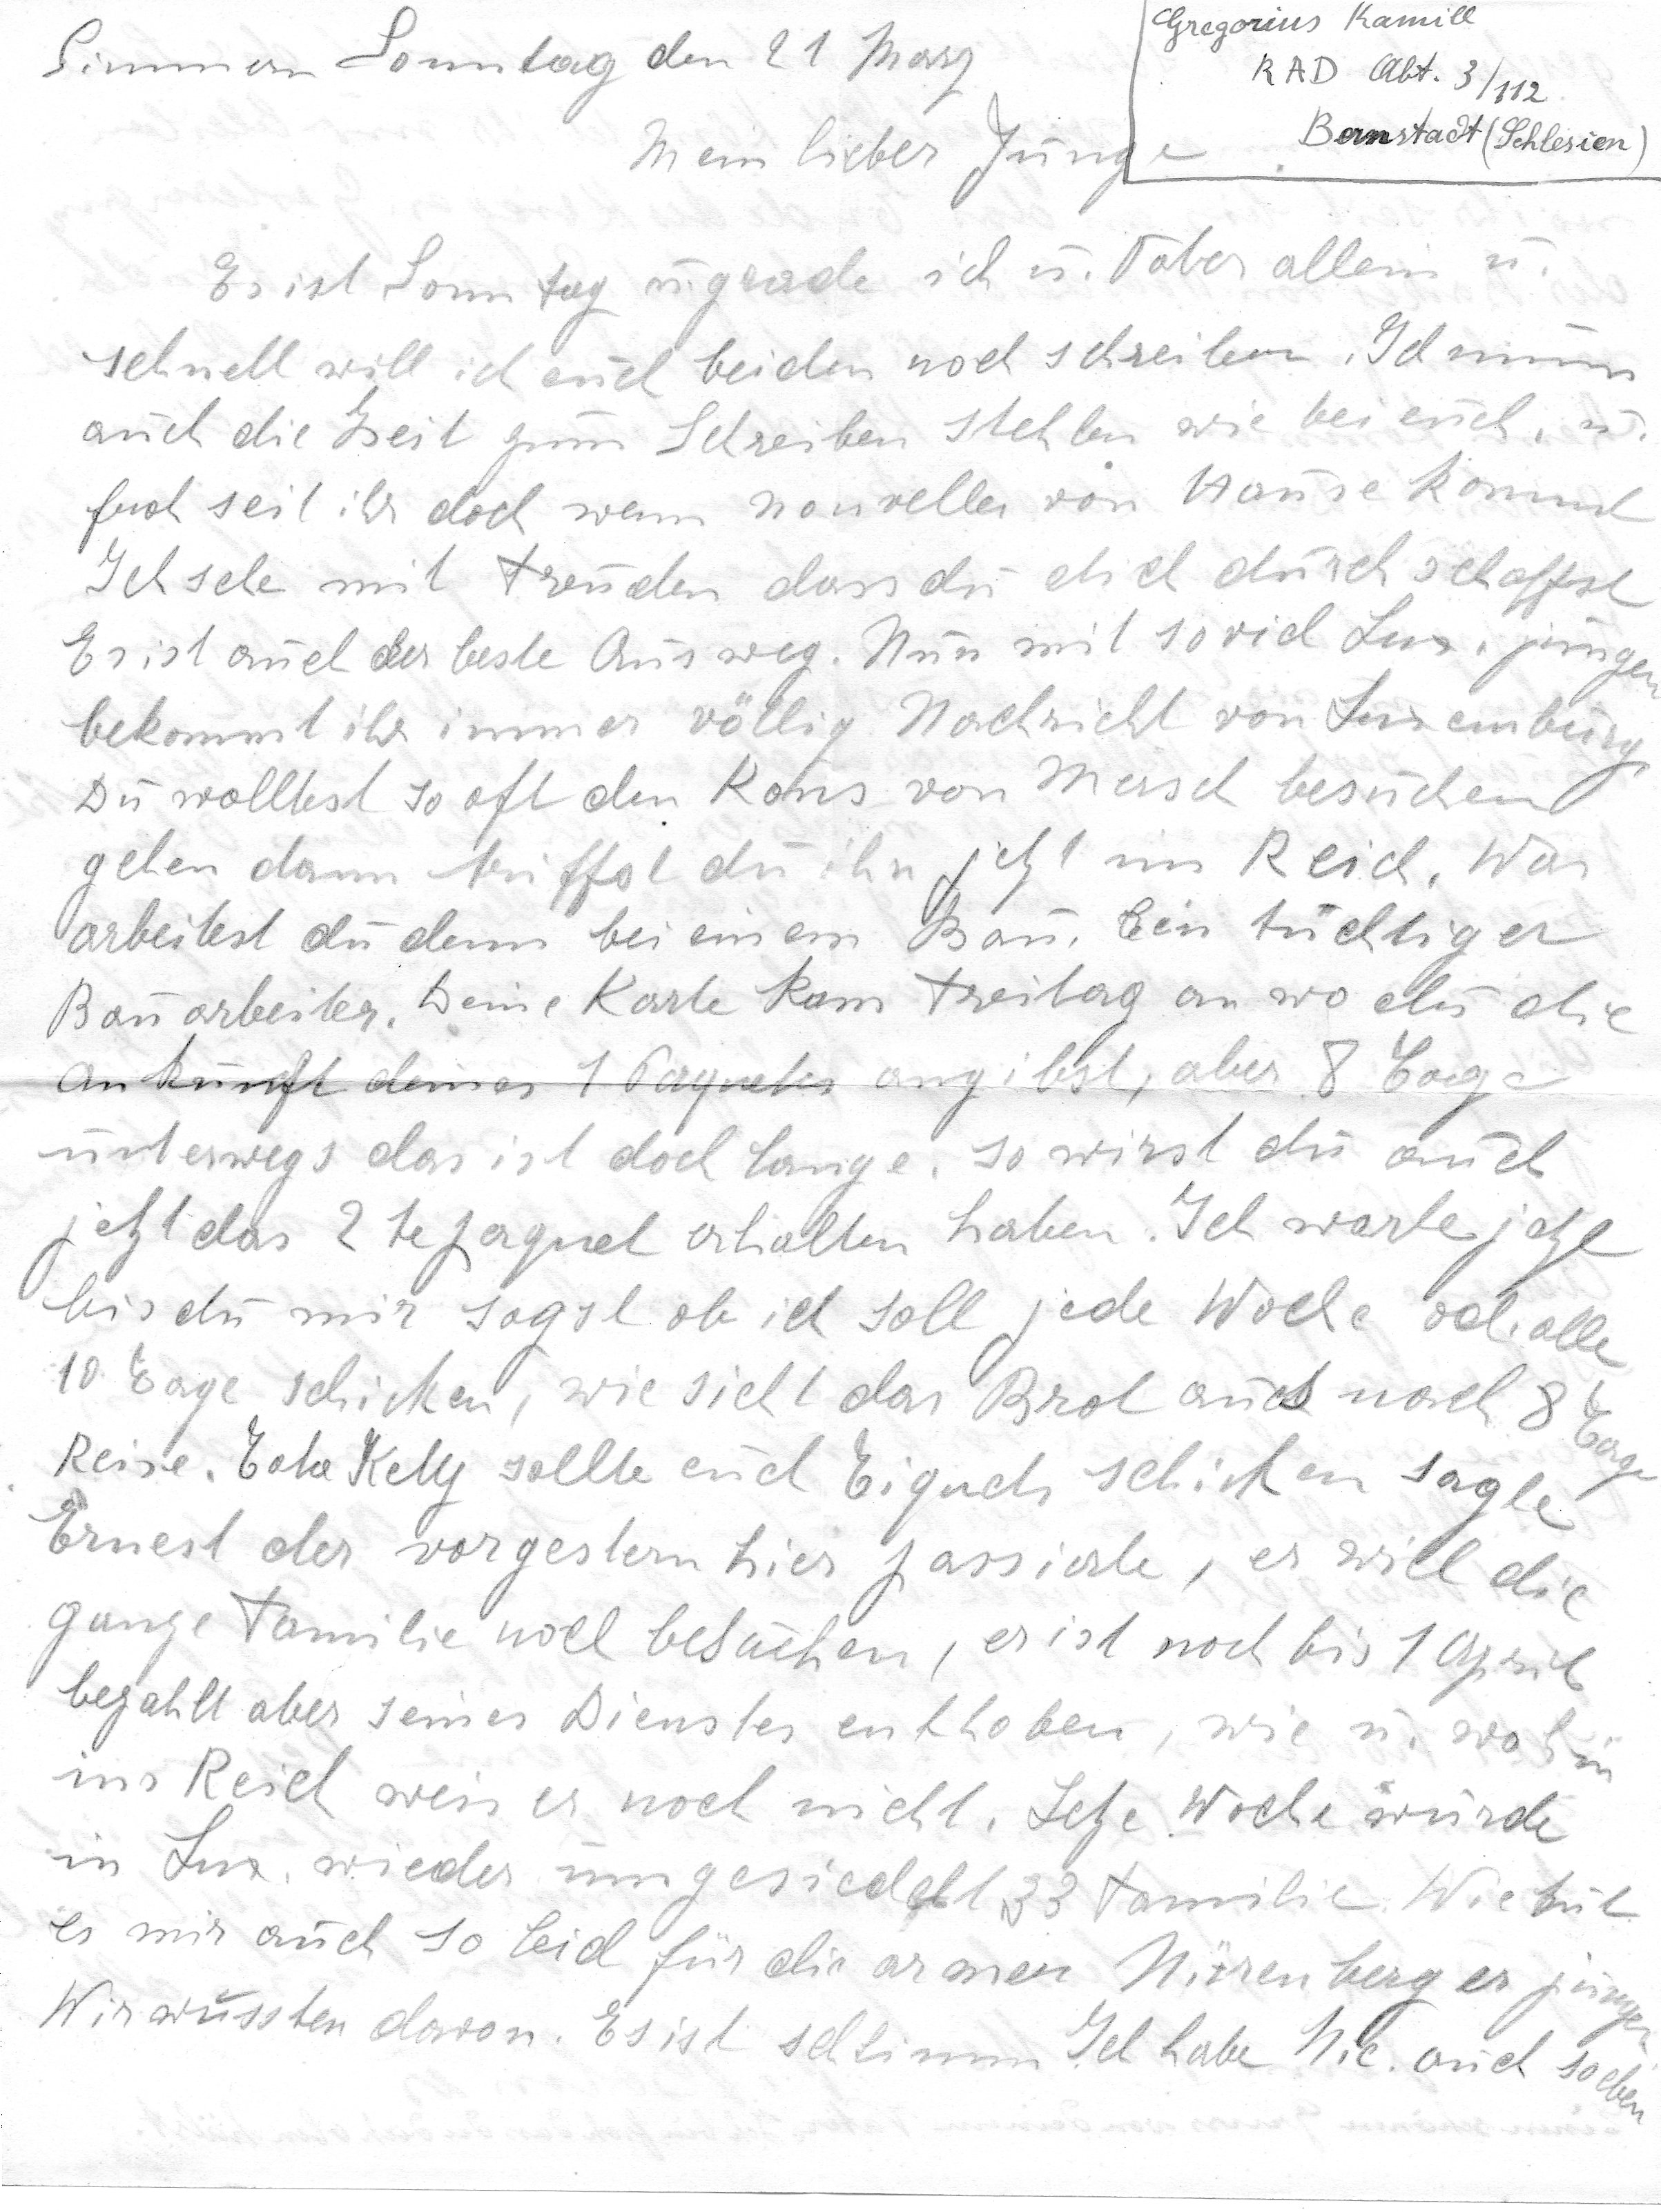 Gregorius Kamill
RAD Abt. 3/112
Bernstadt (Schlesien)
Simmern Sonntag den 21 März
Mein lieber Junge
Es ist Sonntag u. grade ich u. Vater allein u.
schnell will ich euch beiden noch schreiben. Ich muss
auch die Zeit zum Schreiben stehlen wie bei euch, u.
froh seit ihr doch wenn nouvelles von Hause kommt
Ich sehe mit Freuden dass du dich durch schaffst
Es ist auch der beste Ausweg. Nun mit soviel Lux. jungen
bekommt ihr immer völlig Nachricht von Luxemburg,
Du wolltest so oft den Kons von Mersch besuchen
gehen dann triffst du ihn jetzt im Reich. Was
arbeitest du denn bei einem Bau. Ein tüchtiger
Bauarbeiter. Deine Karte kam Freitag an wo du die
Ankunft deines 1 Paquetes angibst, aber 8 Tage
unterwegs das ist doch lange. so wirst du auch
jetzt das 2te paquet erhalten haben. Ich warte jetzt
bis du mir sagst ob ich soll jede Woche od. alle
10 Tage schicken, wie sieht das Brot aus nach 8 Tage
Reise. Ketty sollte euch schicken sagte
Ernest der vorgestern hier passierte, er will die
ganze Familie noch besuchen, er ist noch bis 1 April
bezahlt aber seines Dienstes enthoben, wie u. wohin
ins Reich weis er noch nicht. Letze Woche wurde
in Lux. wieder umgesiedelt 33 Familie. Wie tut
es mir auch so leid für die armen Nürenberger jungen
Wir wussten davon. Es ist schlimm Ich habe Nic. auch soeben